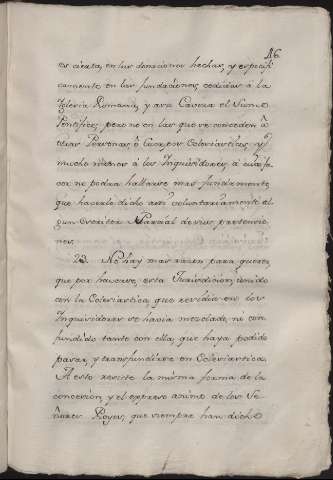 16
es cierta, en las donaciones hechas, y especifi
camente en las fundaciones, cedidas à la
Iglesia Romana, y a su Caveza el Sumo
Pontifice; pero no en las que se conceden à
otras Personas, ò Cuerpos Eclesiasticos, y
mucho menos à los Inquisidores, à cuio fa
vor no podra hallarse mas fundamento
que haverlo dicho assi voluntariamente al
gun Escritor Parcial de sus pretensio
nes.
23. No hay mas razon para querer,
que por hauerse, esta Jurisdicion, unido
con la Eclesiastica, que residia en los
Inquisidores se hacia mezclado, ni con
fundido tanto con ella, que haya podido
pasar, y transfundirse en Eclesiastica.
A esto resiste la misma forma de la
concesion, y el expreso animo de los Se
ñores Reyes, que siempre han dicho